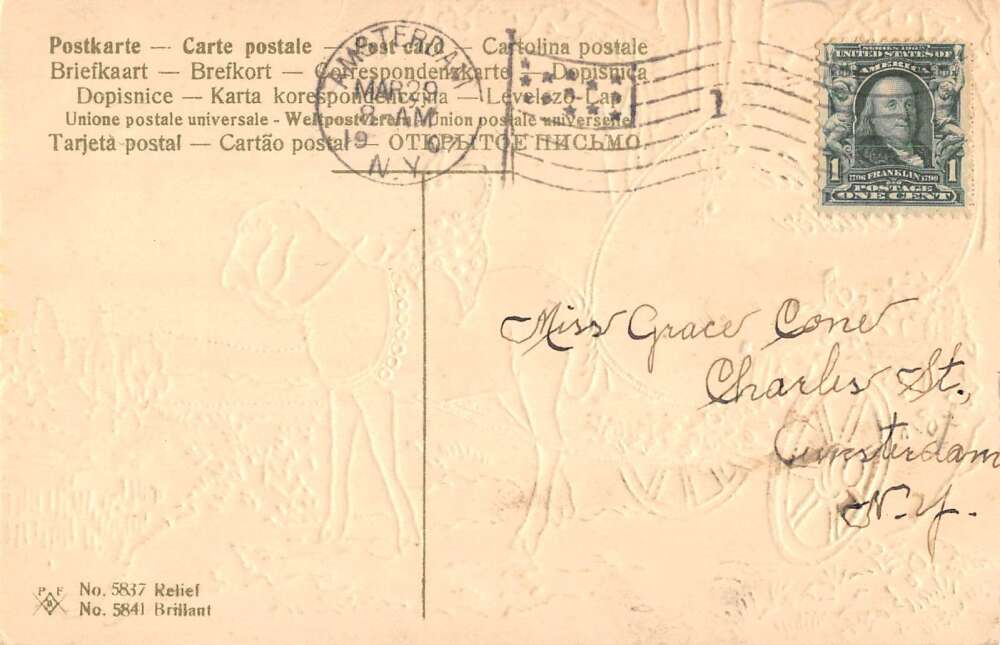 Postkarte — Carte postale — Post card — Cartolina postale
Briefkaart — Brefkort — Correspondenskarte — Dopisnica
Dopisnice — Karta korespondencyjna — Levelező-Lap
Unione postale universale - Weltpostverein - Union postale universelle
Tarjeta postal — Cartão postal — ОТКРЫТОЕ ПИСЬМО
AMSTERDAM
MAR 29
AM
N.Y.
1
SERIES 1902
UNITED STATES OF
AMERICA
1706 FRANKLIN 1790
1 1
POSTAGE
ONE CENT
Miss Grace Cone
Charles St.,
Amsterdam
N.Y.
P F
No. 5837 Relief
No. 5841 Brillant